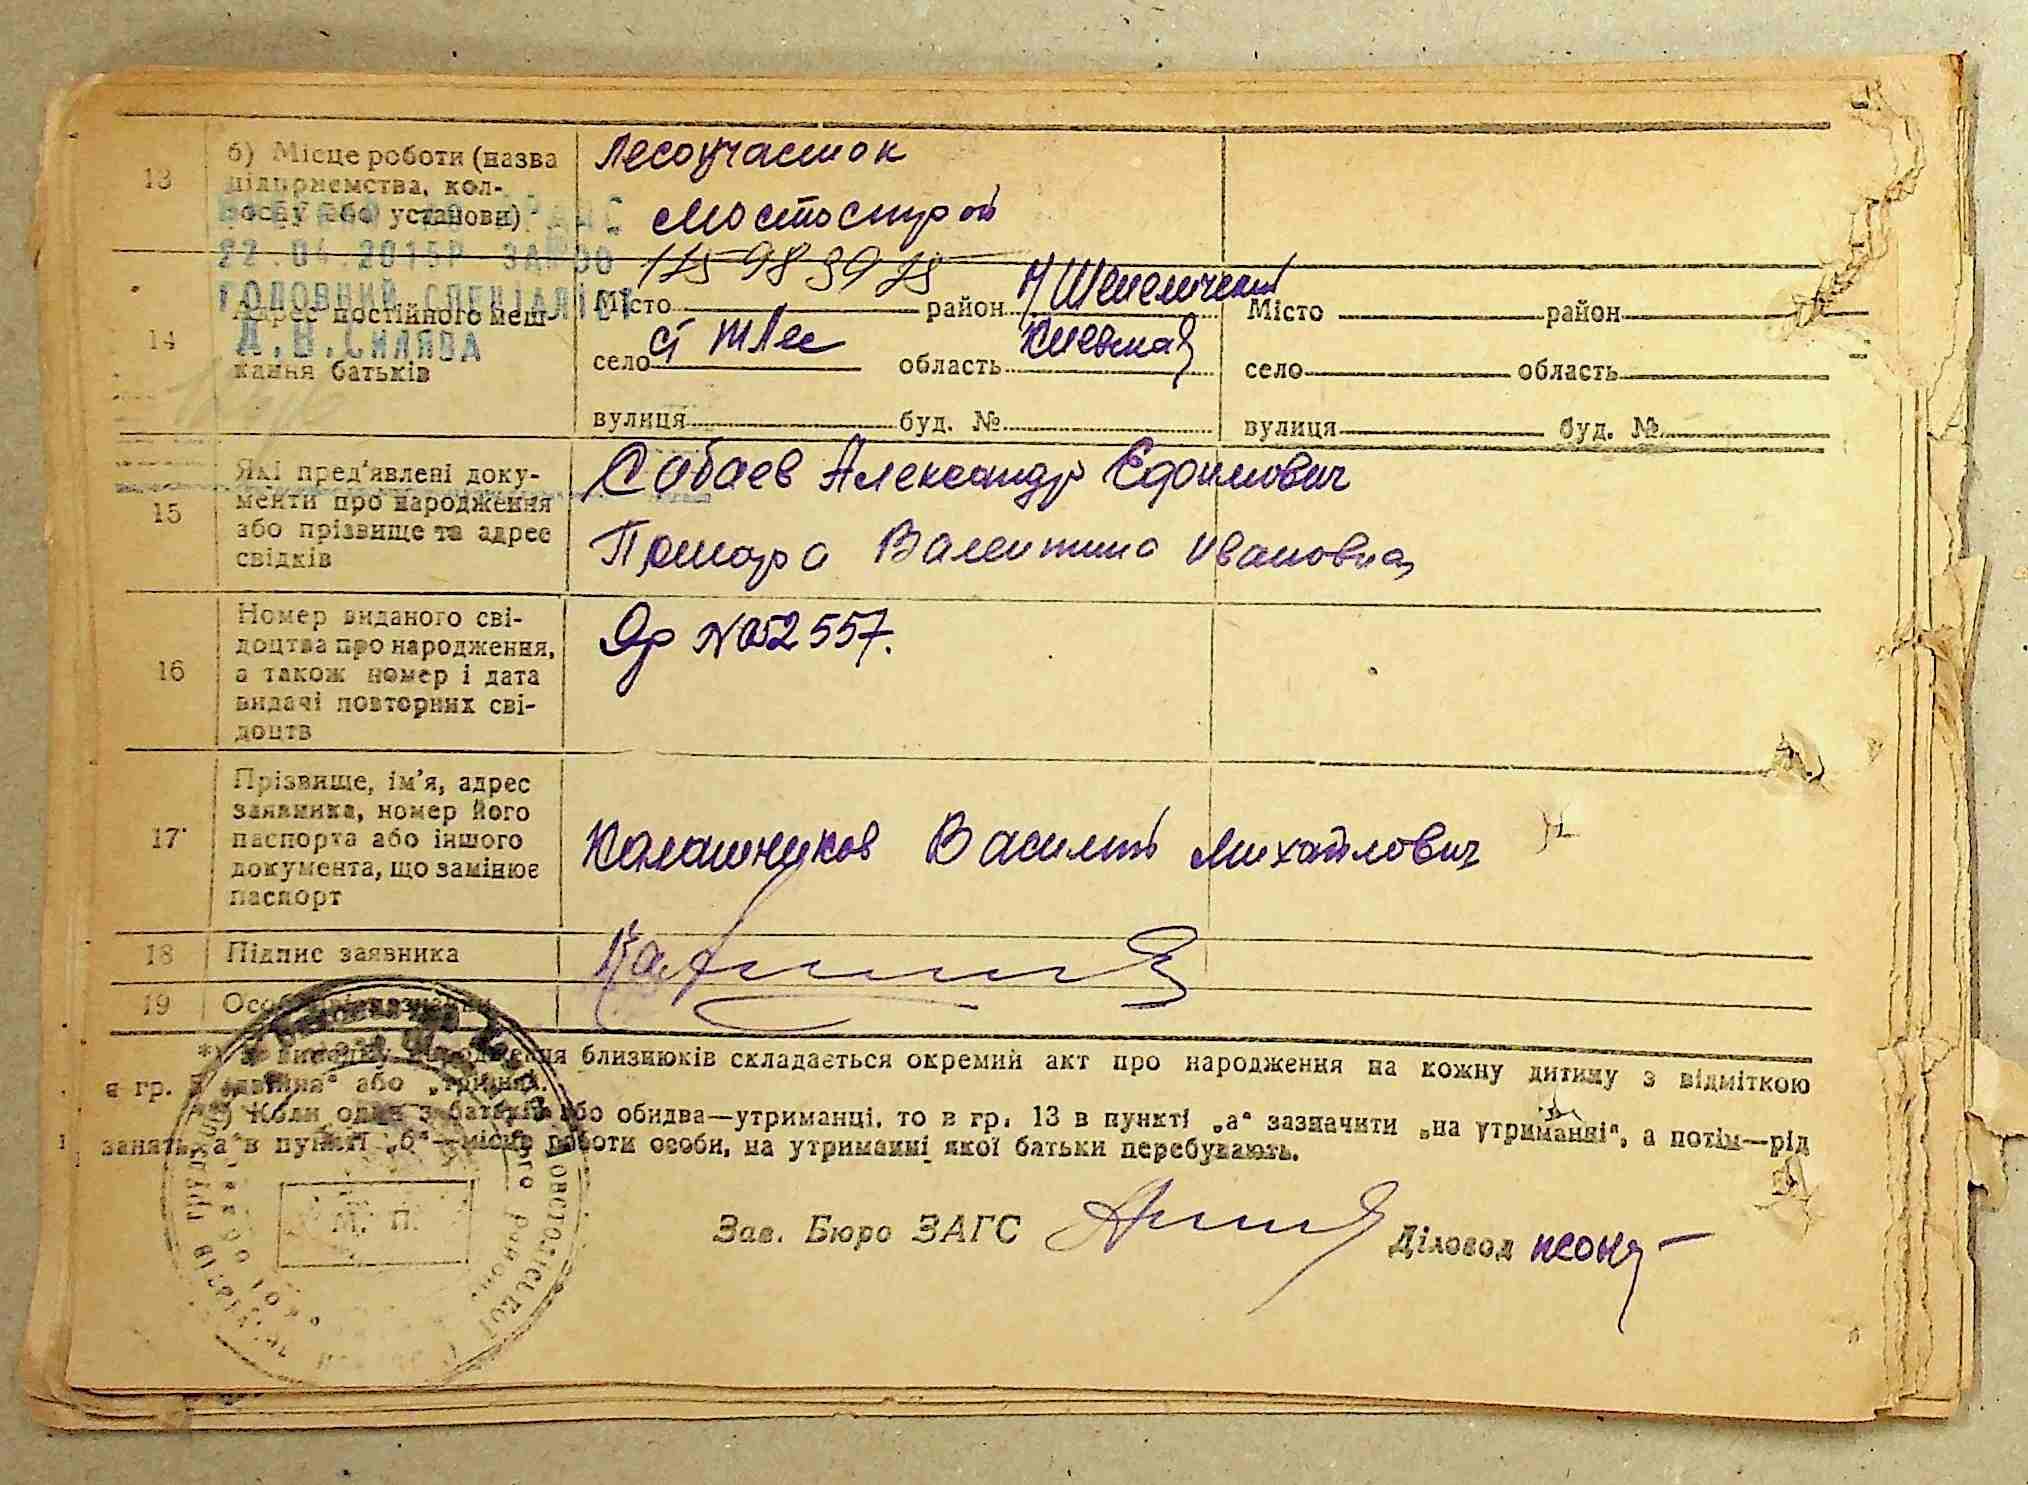 13
б) Місце роботи (назва
підприємства, кол-
госпу або установи)
Лесоучасток
Мостострой
22.04.2015Р
ГОЛОВНИЙ СПЕЦІАЛІСТ
14
Адрес постійного меш-
кання батьків
Місто район Н Шепеличский
село ст область Киевская
вулиця буд. №
Місто район
село область
вулиця буд. №
15
Які пред'явлені доку-
менти про народження
або прізвище та адрес
свідків
Сабаев Александр Ефимович
Валентина Ивановна
16
Номер виданого сві-
доцтва про народження,
а також номер і дата
видачі повторних сві-
доцтв
№ 052557.
17
Прізвище, ім'я, адрес
заявника, номер його
паспорта або іншого
документа, що замінює
паспорт
Калашников Василий Михайлович
18
Підпис заявника
19
близнюків складається окремий акт про народження на кожну дитину з відміткою
в гр. або
Коли один з батьків або обидва—утриманці, то в гр. 13 в пункті „а" зазначити „на утриманні", а потім—рід
занять, а в пункті „б"—місце роботи особи, на утриманні якої батьки перебувають.
М. П.
Зав. Бюро ЗАГС Діловод